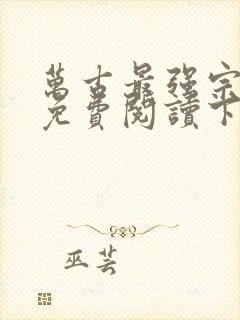 萬古最強宗
免費閱讀下
巫芸